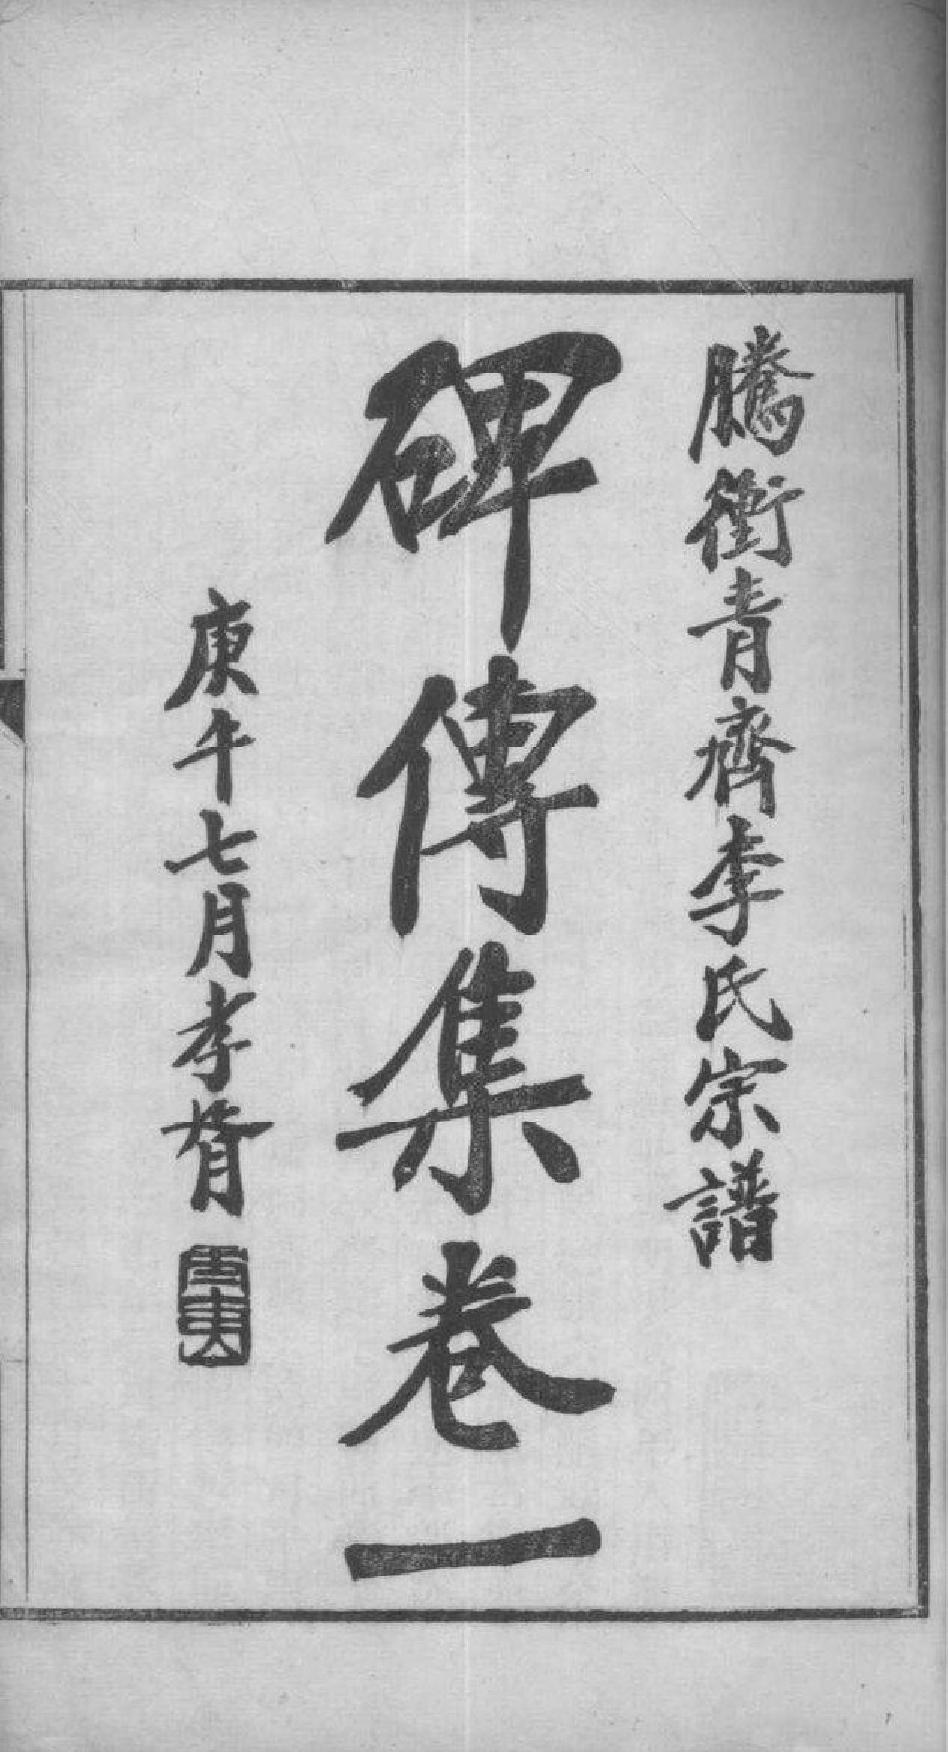 騰衝青齊李氏宗譜
碑傳集卷一
庚午七月孝胥